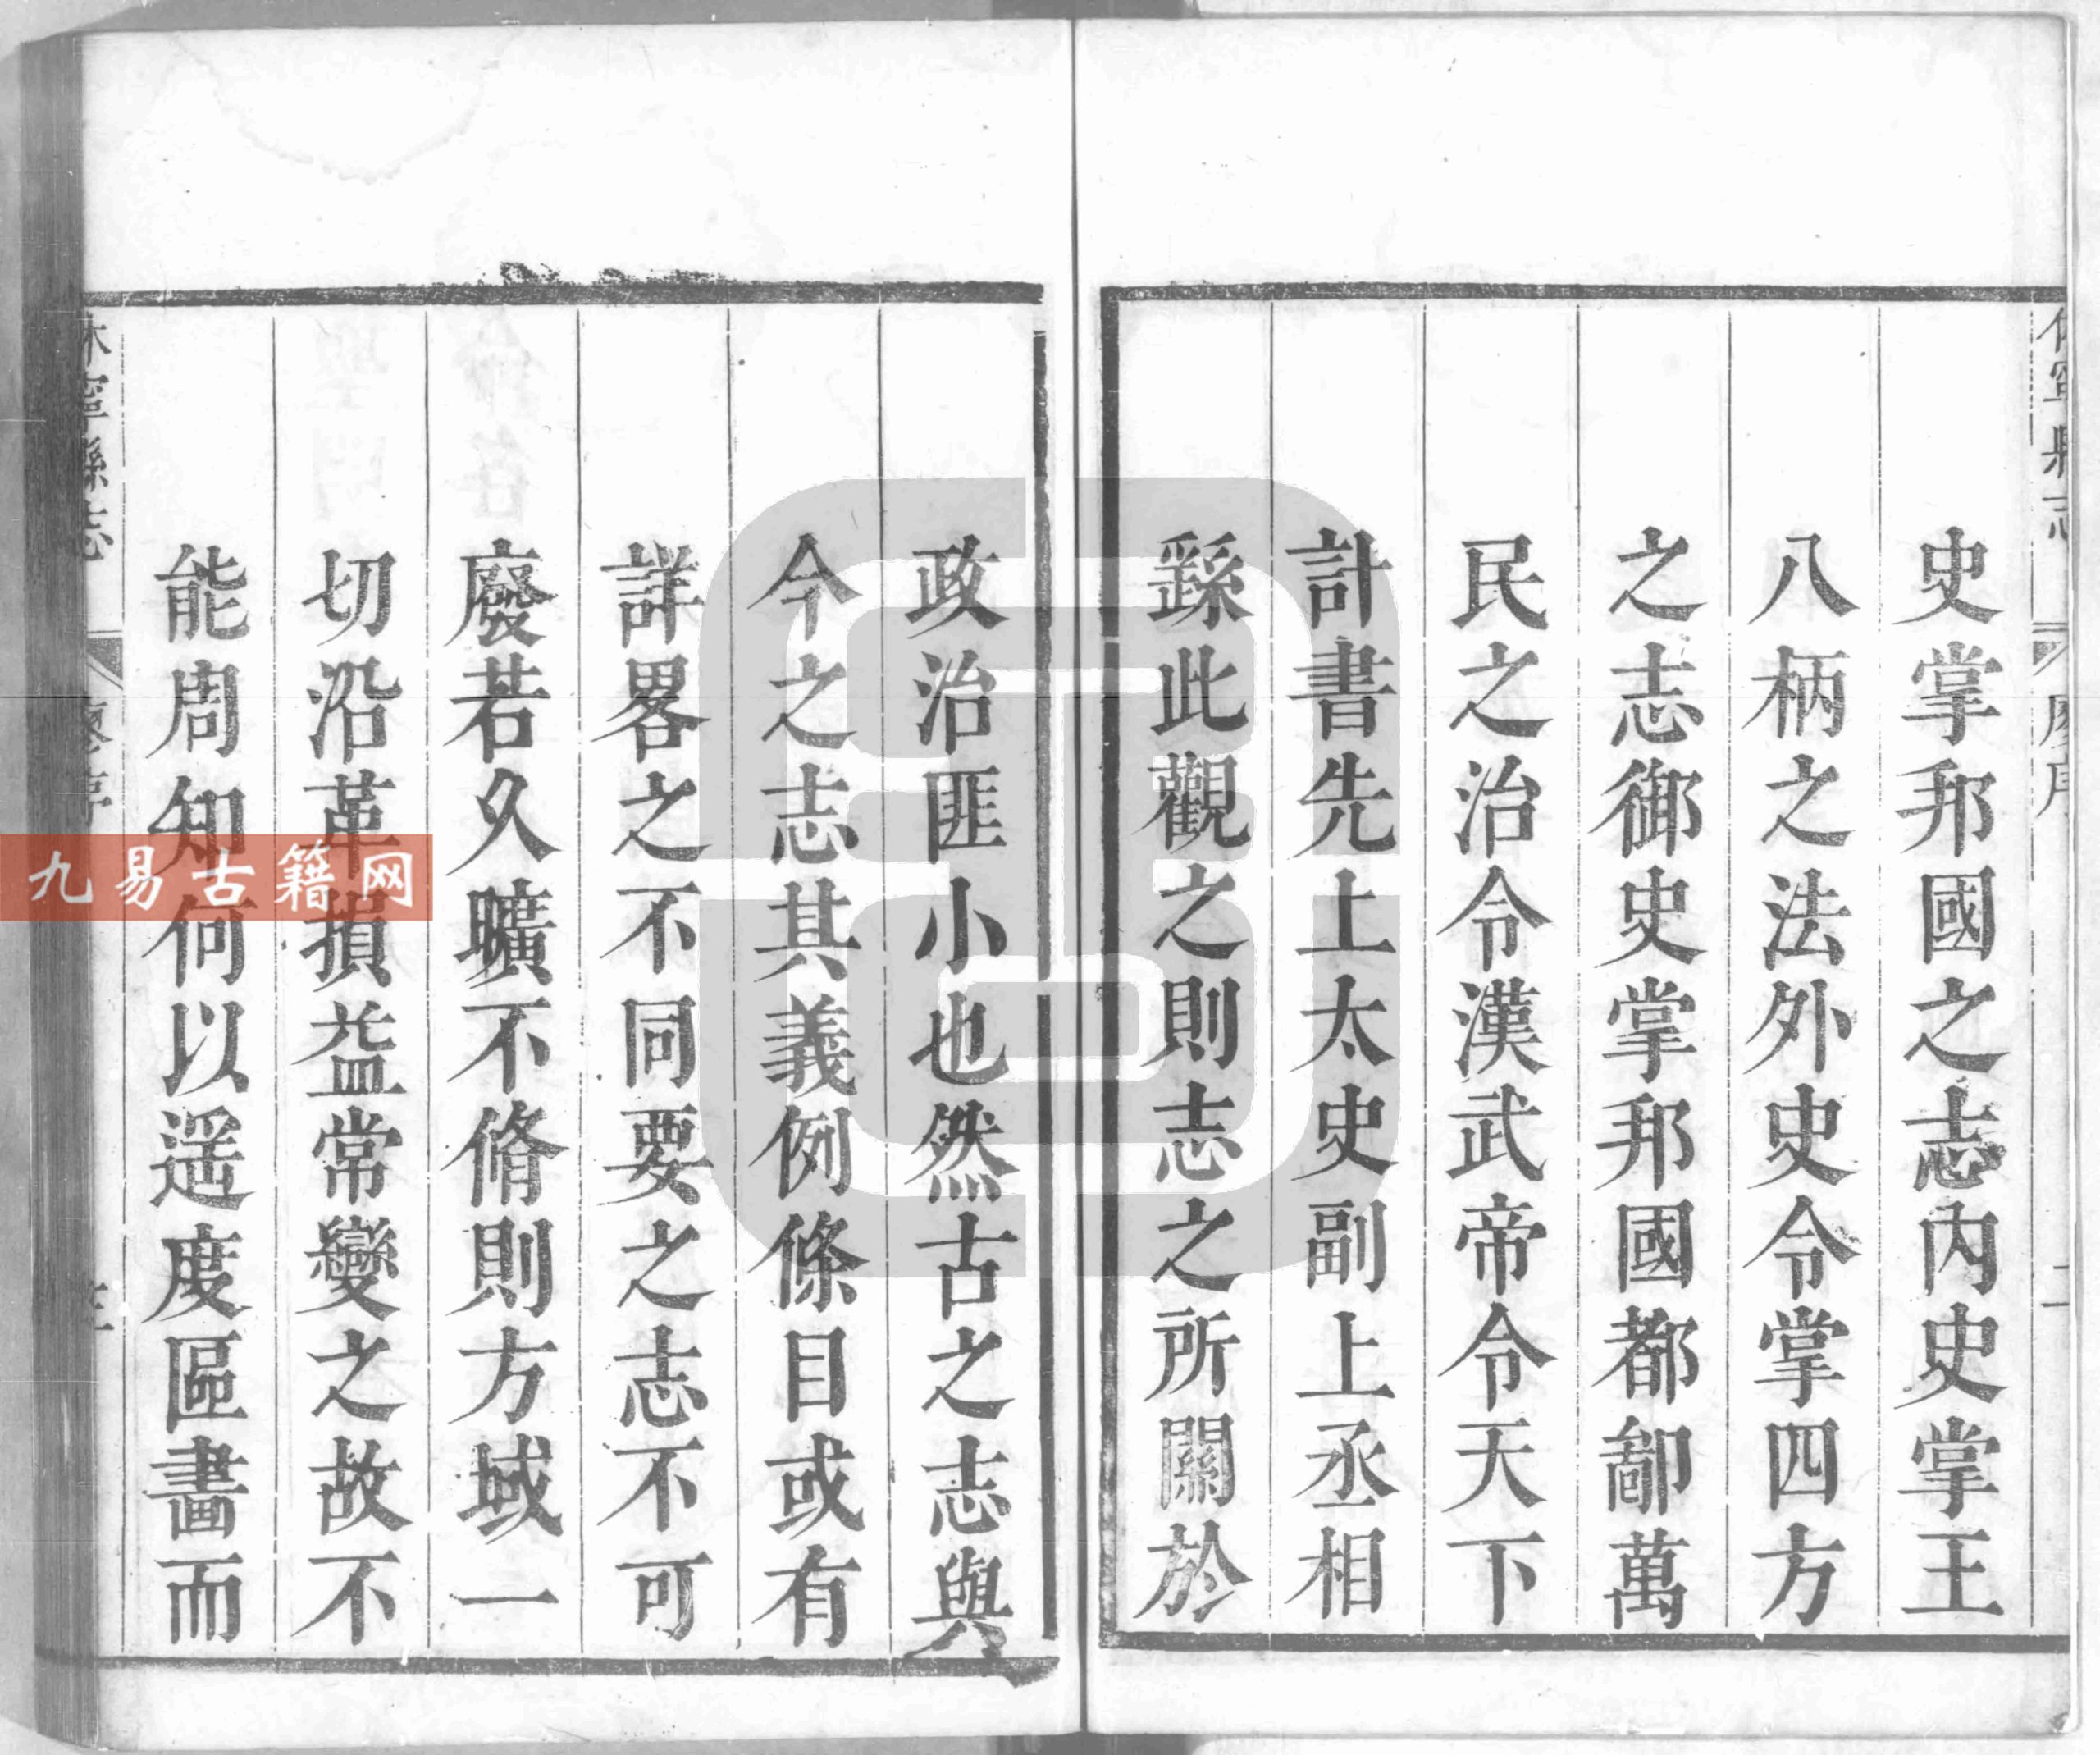 史掌邦國之志內史掌王
八柄之法外史令掌四方
之志御史掌邦國都鄙萬
民之治令漢武帝令天下
計書先上太史副上丞相
繇此觀之則志之所關於
政治匪小也然古之志與
今之志其義例條目或有
詳畧之不同要之志不可
廢若久曠不脩則方域一
切沿革損益常變之故不
能周知何以遥度區畫而
休寧縣志
廖序
九易古籍网